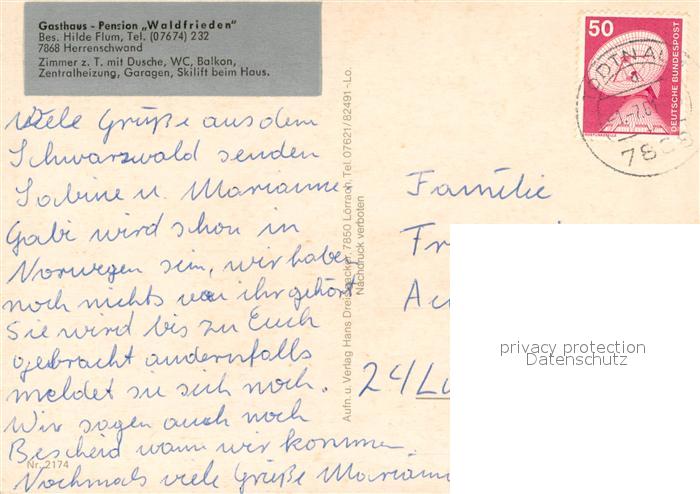 Gasthaus - Pension „Waldfrieden"
Bes. Hilde Flum, Tel. (07674) 232
7868 Herrenschwand
Zimmer z. T. mit Dusche, WC, Balkon,
Zentralheizung, Garagen, Skilift beim Haus.
Viele Grüße aus dem
Schwarzwald senden
Sabine u. Marianne.
Gabi wird schon in
Norwegen sein, wir haben
noch nichts von ihr gehört
Sie wird bis zu Euch
gebracht andernfalls
meldet sie sich noch.
Wir sagen auch noch
Bescheid wann wir kommen.
Nochmals viele Grüße Marianne
Nr. 2174
Aufn. u. Verlag Hans Dreispacker, 7850 Lörrach, Tel. 07621/82491 -Lo.
Nachdruck verboten
50
DEUTSCHE BUNDESPOST
a
786
Familie
Fr
24 L
privacy protection
Datenschutz